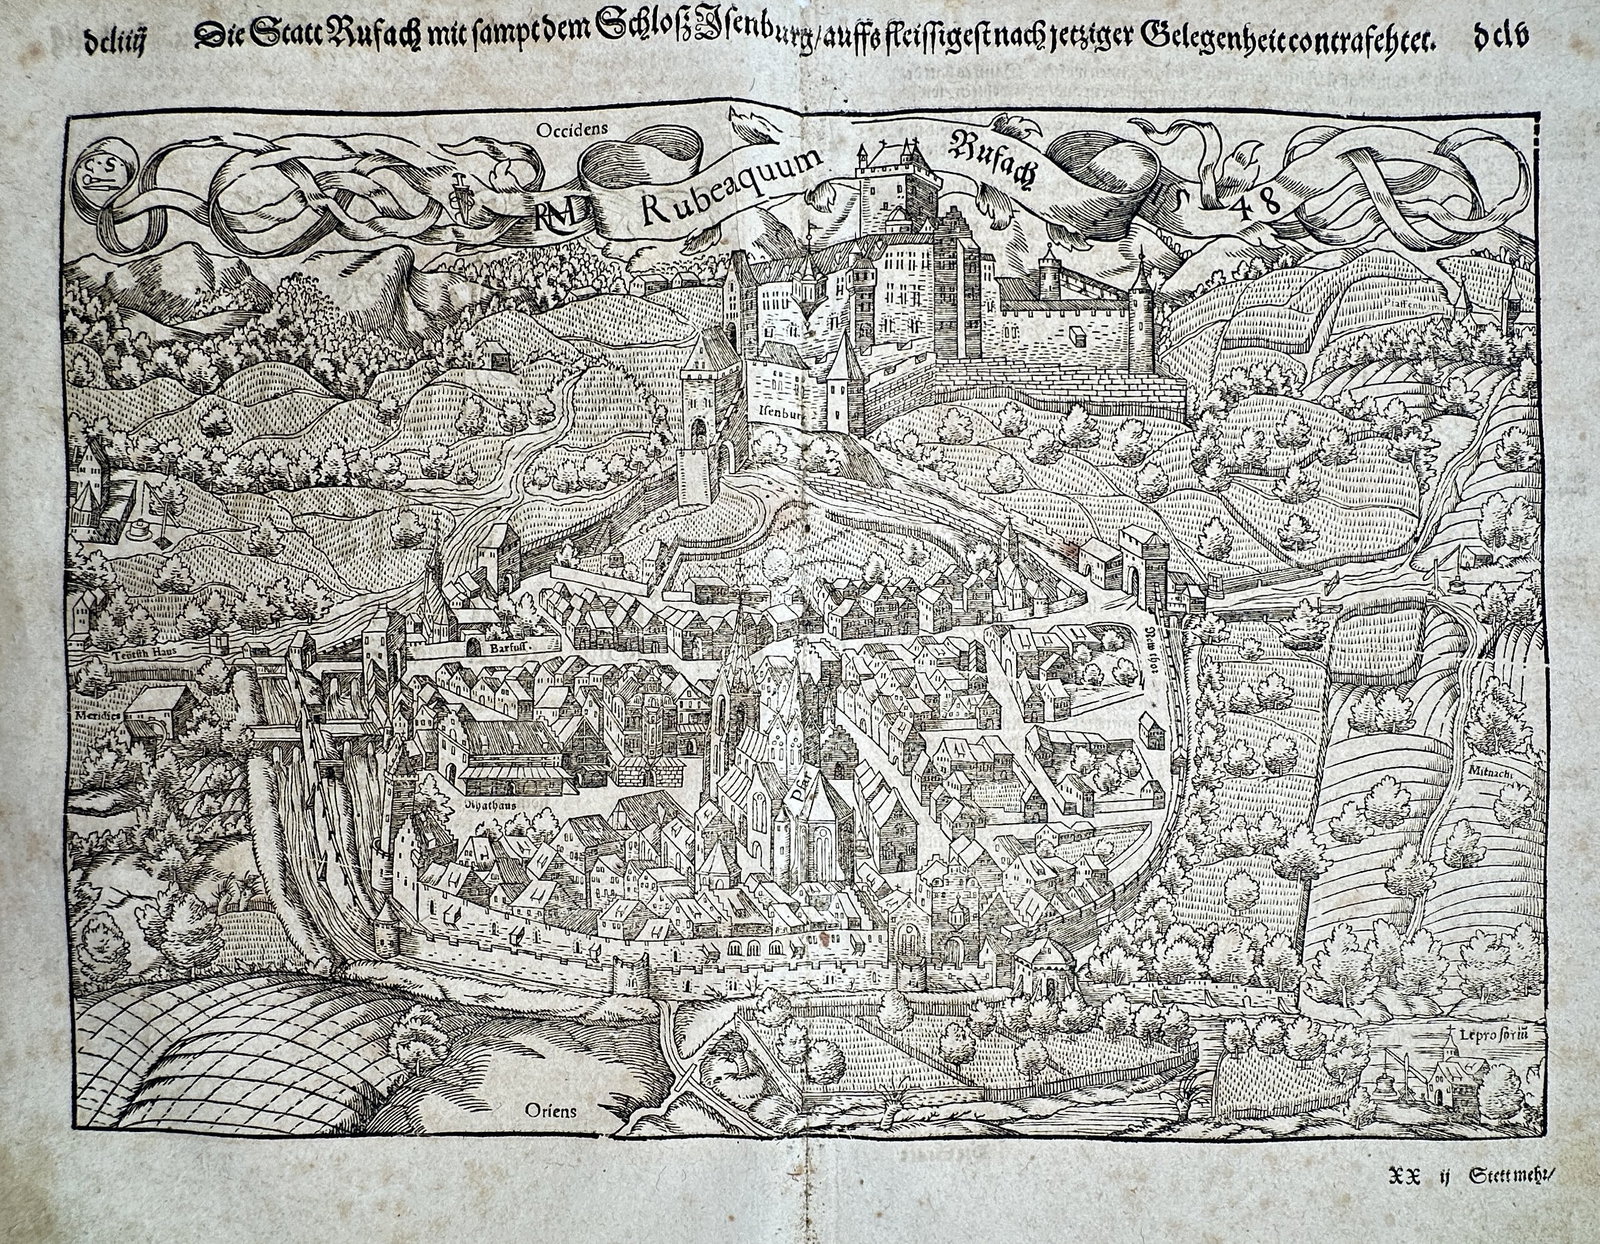 dcliiij Die Statt Rufach mit sampt dem Schloß Isenburg/ auffs fleissigest nach jetziger Gelegenheit contrafehtet. dclv
Occidens
C·S·
RMD
Rubeaquum
Rufach
1548
Isenburg
Teütsh Haus
Barfuss.
New thor
Meridies
Mitnacht
Rhathaus
Pfar
Leprosoriū
Oriens
XX ij Stett mehr/